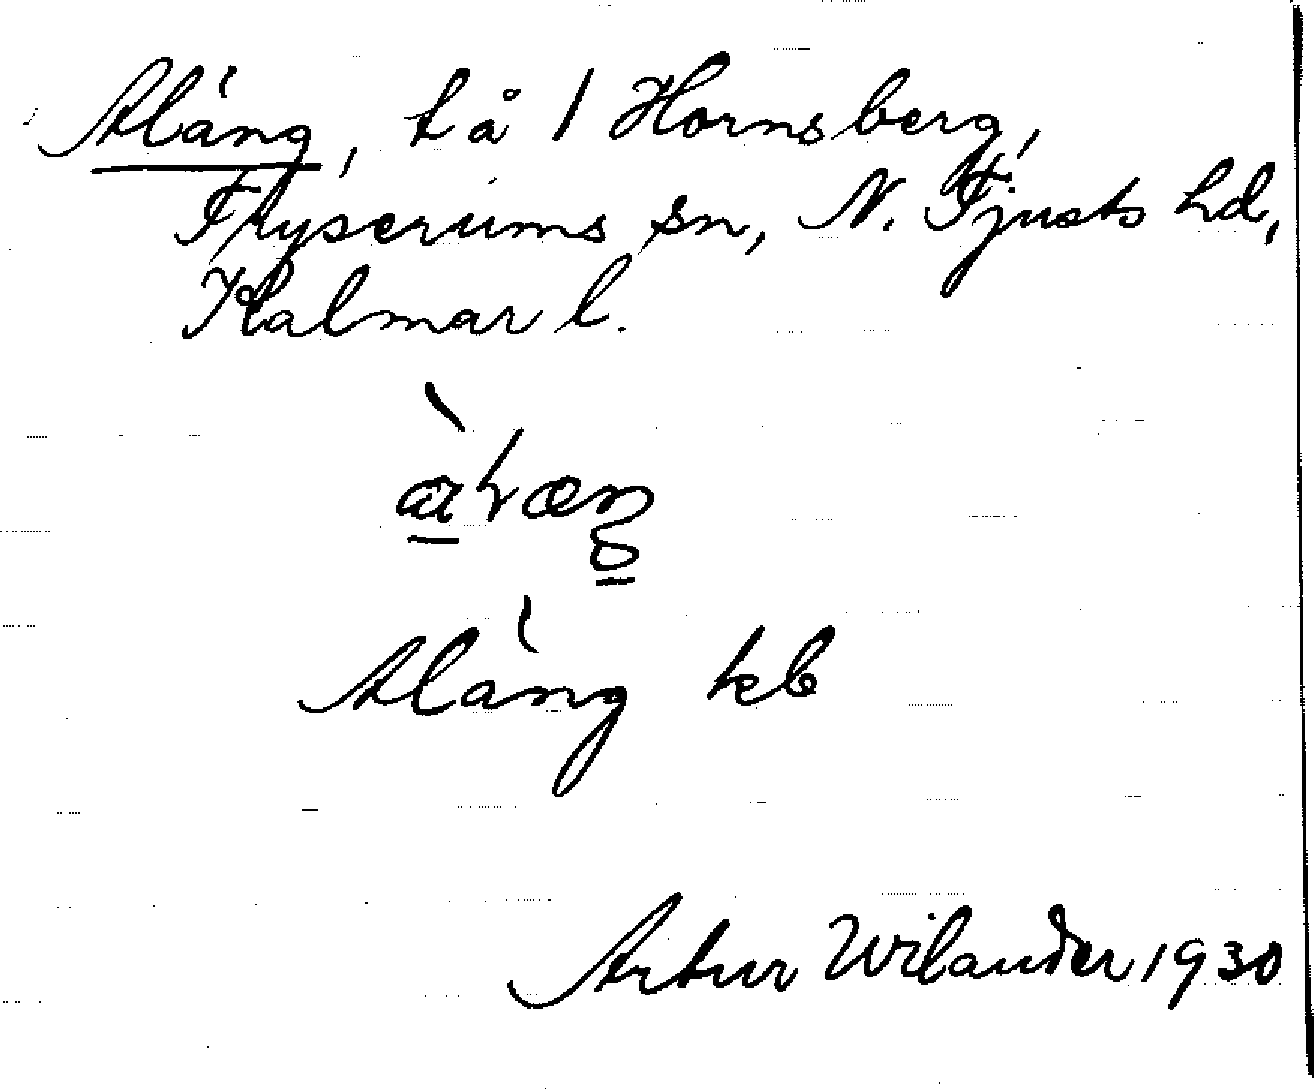 Aläng, tå / Hornsberg,
Fryserums sn, N. Tjusts hd,
Kalmar l.
Aläng kb
Artur Wilander 1930